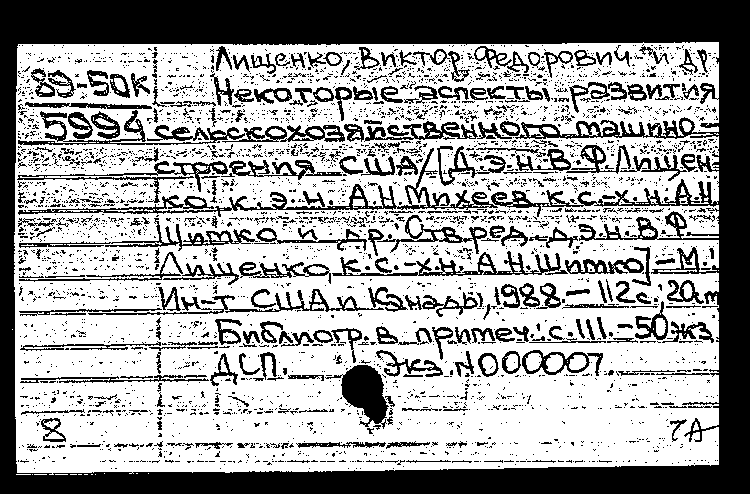 Лищенко, Виктор Федорович и др
89-50К
Некоторые аспекты развития
5994
сельскохозяйственного машино-
строения США/[Д.э.н. В.Ф. Лищен-
ко, к.э.н. А.Н. Михеев, к.с.-х.н. А.Н.
Шитко и др.; Отв. ред. д.э.н. В.Ф.
Лищенко, к.с.-х.н. А.Н. Шитко]-М.:
Ин-т США и Канады, 1988-112с.; 20см
Библиогр. в примеч.: с.111.-50экз
ДСП. Экз. N000007.
8
7А